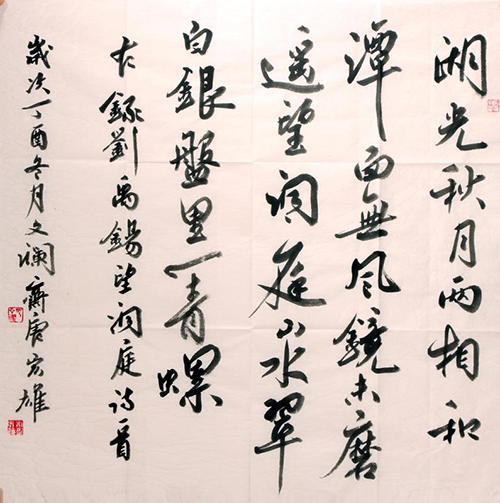 湖光秋月两相和
潭面無风鏡未磨
遥望洞庭山水翠
白銀盤里一青螺
右錄劉禹錫望洞庭诗首
歲次丁酉冬月文澜齋唐宏雄